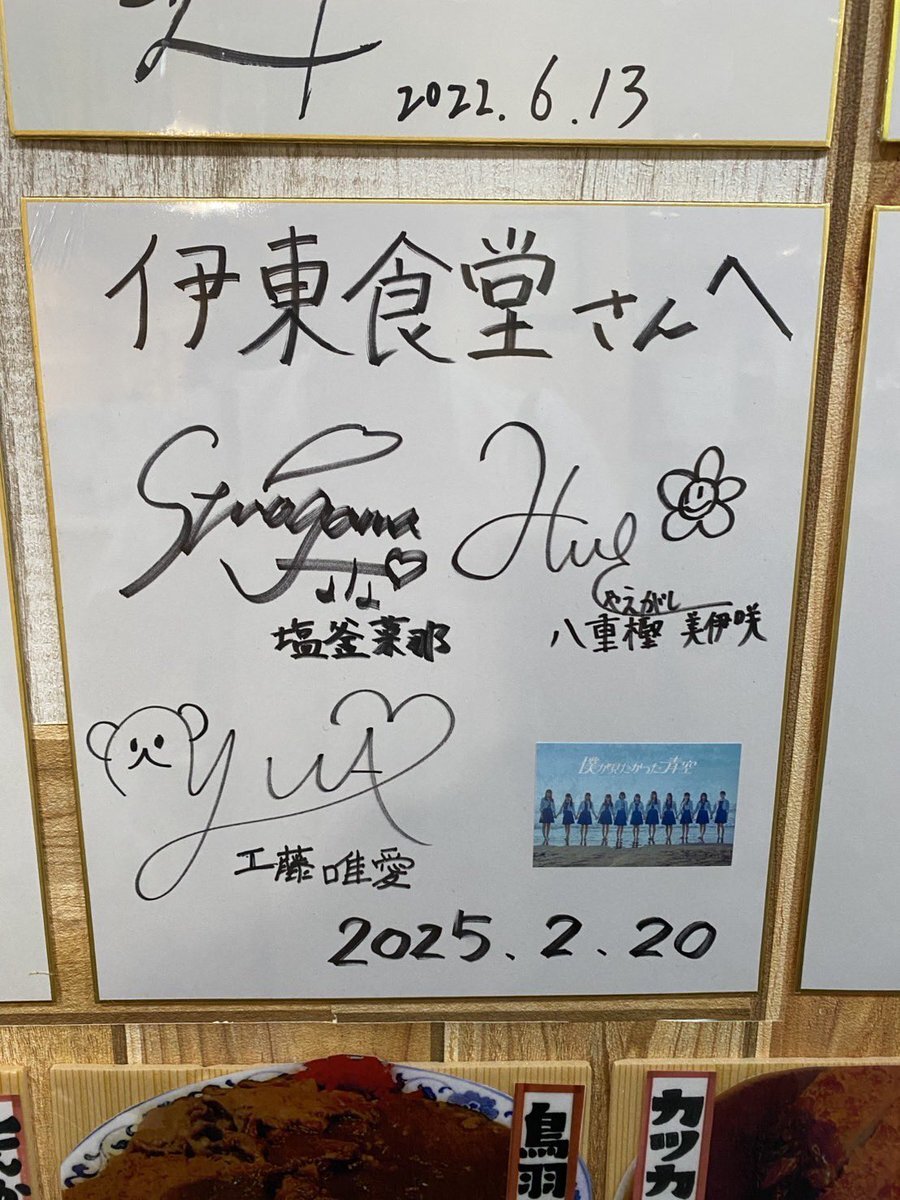 2022.6.13
伊東食堂さんへ
Shiogama
塩釜菜那
やえがし
八重樫 美伊咲
yuA
工藤唯愛
僕が見たかった青空
2025.2.20
鳥羽
カツカ